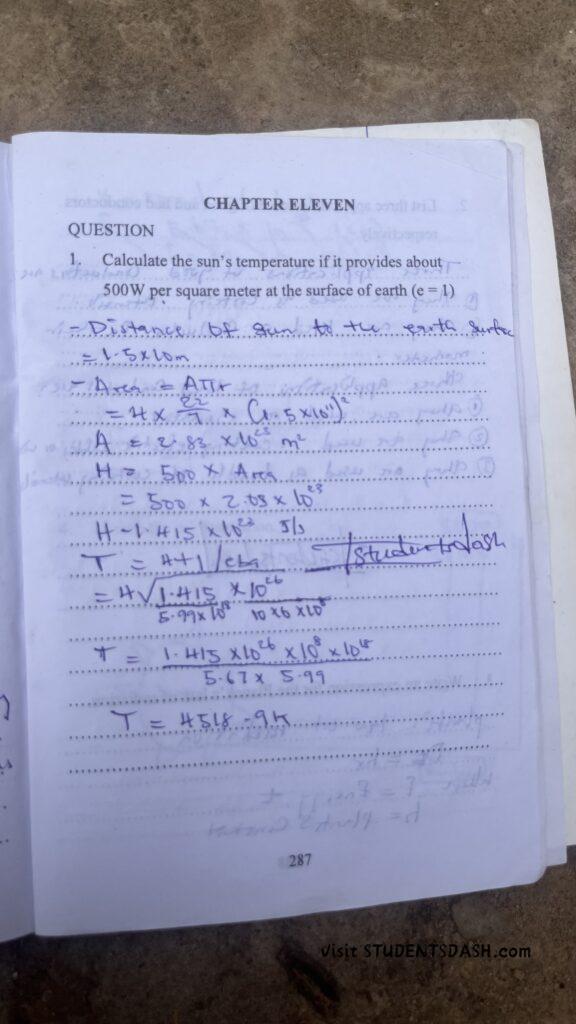 CHAPTER ELEVEN
QUESTION
1. Calculate the sun's temperature if it provides about
500W per square meter at the surface of earth (e = 1)
- Distance of sun to the earth surface
= 1.5x10m
- Area = 4πr
= 4 x 22/7 x (1.5x10¹¹)²
A = 2.83 x10²³ m²
H = 500 x Area
= 500 x 2.83 x 10²³
H = 1.415 x10 J/s
T =
= 4√1.415 x10²⁶
5.99x10¹⁸
T = 1.415 x10²⁶ x10⁸ x10¹⁸
5.67 x 5.99
T = 4518.9K
287
Visit STUDENTSDASH.com